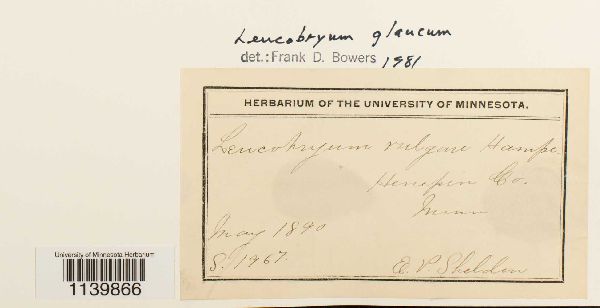 Leucobryum glaucum
det.: Frank D. Bowers 1981
HERBARIUM OF THE UNIVERSITY OF MINNESOTA.
Leucobryum vulgare Hampe.
Henepin Co.
Minn
May 1890
S. 1967.
E. P. Sheldon
University of Minnesota Herbarium
1139866